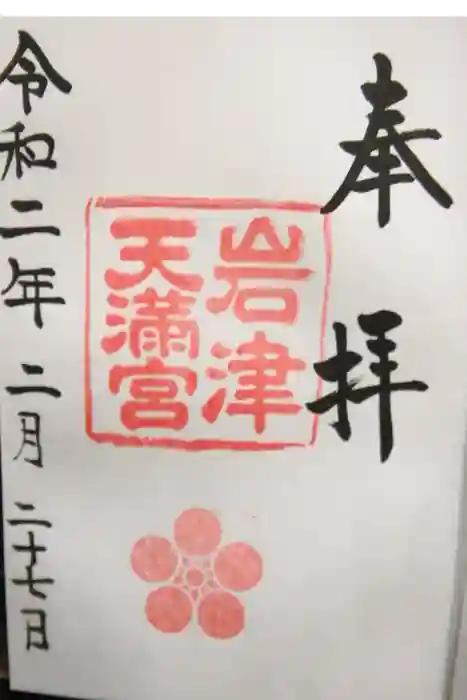 奉拝
岩津
天満宮
令和二年 二月 二十七日